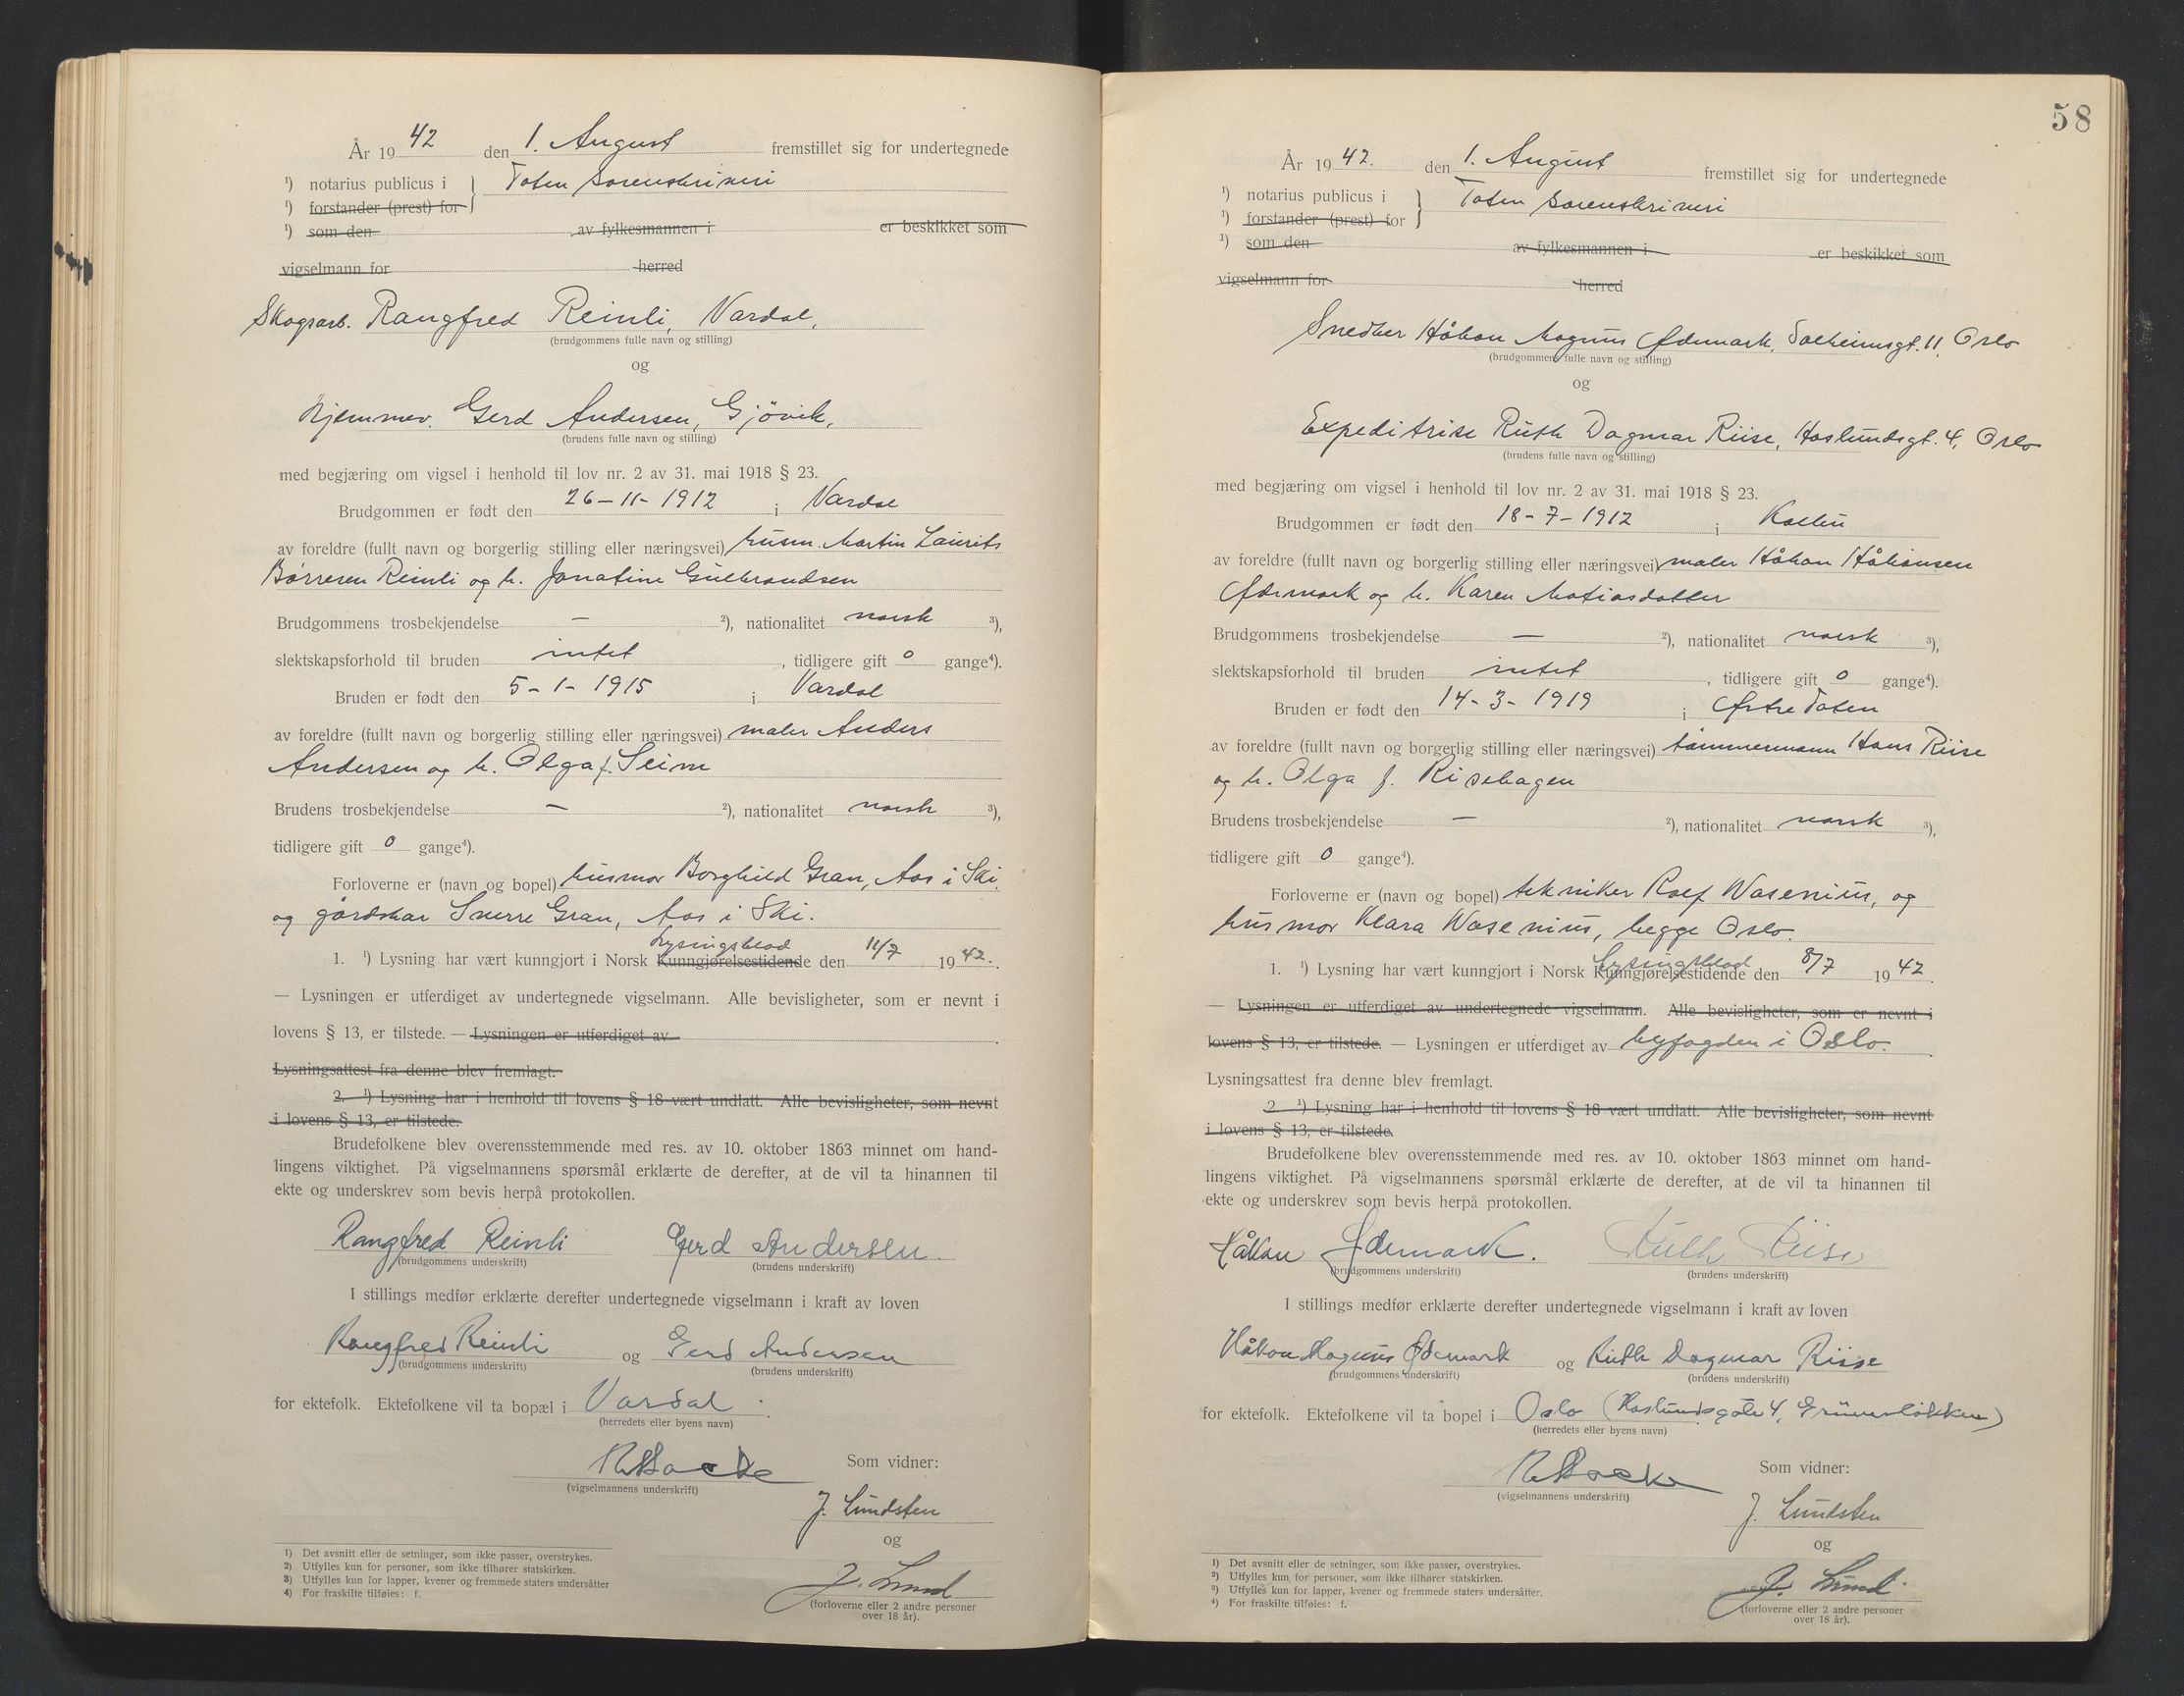 År 1942 den 1. August fremstillet sig for undertegnede
¹) notarius publicus i } Toten Sorenskriveri
¹) forstander (prest) for
¹) som den av fylkesmannen i er beskikket som
vigselmann for herred
Skogsarb. Rangfred Reinli, Vardal,
(brudgommens fulle navn og stilling)
og
Hjemmev. Gerd Andersen, Gjövik,
(brudens fulle navn og stilling)
med begjæring om vigsel i henhold til lov nr. 2 av 31. mai 1918 § 23.
Brudgommen er født den 26-11-1912 i Vardal
av foreldre (fullt navn og borgerlig stilling eller næringsvei) husm. Martin Laurits
Børresen Reinli og h. Jonatine Gulbrandsen
Brudgommens trosbekjendelse — ²), nationalitet norsk ³),
slektskapsforhold til bruden intet, tidligere gift 0 gange⁴).
Bruden er født den 5-1-1915 i Vardal
av foreldre (fullt navn og borgerlig stilling eller næringsvei) maler Anders
Andersen og h. Olga f. Seim
Brudens trosbekjendelse — ²), nationalitet norsk ³),
tidligere gift 0 gange⁴).
Forloverne er (navn og bopel) husmor Borghild Gran, Aas i Ski,
og gårdskar Snerre Gran, Aas i Ski.
Lysingsblad
1. ¹) Lysning har vært kunngjort i Norsk Kunngjørelsestidende den 11/7 1942.
— Lysningen er utferdiget av undertegnede vigselmann. Alle bevisligheter, som er nevnt i
lovens § 13, er tilstede. — Lysningen er utferdiget av .
Lysningsattest fra denne blev fremlagt.
2. ¹) Lysning har i henhold til lovens § 18 vært undlatt. Alle bevisligheter, som nevnt
i lovens § 13, er tilstede.
Brudefolkene blev overensstemmende med res. av 10. oktober 1863 minnet om hand-
lingens viktighet. På vigselmannens spørsmål erklærte de derefter, at de vil ta hinannen til
ekte og underskrev som bevis herpå protokollen.
Rangfred Reinli Gerd Andersen.
(brudgommens underskrift) (brudens underskrift)
I stillings medfør erklærte derefter undertegnede vigselmann i kraft av loven
Rangfred Reinli og Gerd Andersen
(brudgommens underskrift) (brudens underskrift)
for ektefolk. Ektefolkene vil ta bopæl i Vardal.
(herredets eller byens navn)
Som vidner:
(vigselmannens underskrift)
J. Lundsten
og
J. Lund
(forloverne eller 2 andre personer
over 18 år).
1) Det avsnitt eller de setninger, som ikke passer, overstrykes.
2) Utfylles kun for personer, som ikke tilhører statskirken.
3) Utfylles kun for lapper, kvener og fremmede staters undersåtter
4) For fraskilte tilføies: f.
58
År 1942. den 1. August fremstillet sig for undertegnede
¹) notarius publicus i } Toten Sorenskriveri
¹) forstander (prest) for
¹) som den av fylkesmannen i er beskikket som
vigselmann for herred
Snedker Håkon Magnus Ødemark, Solheimsgt. 11, Oslo
(brudgommens fulle navn og stilling)
og
Expeditrise Ruth Dagmar Riise, Haslundsgt. 4, Oslo
(brudens fulle navn og stilling)
med begjæring om vigsel i henhold til lov nr. 2 av 31. mai 1918 § 23.
Brudgommen er født den 18-7-1912 i Kolbu
av foreldre (fullt navn og borgerlig stilling eller næringsvei) maler Håkon Håkonsen
Ødemark og h. Karen Matiasdatter
Brudgommens trosbekjendelse — ²), nationalitet norsk ³),
slektskapsforhold til bruden intet, tidligere gift 0 gange⁴).
Bruden er født den 14-3-1919 i Østre Toten
av foreldre (fullt navn og borgerlig stilling eller næringsvei) tømmermann Hans Riise
og h. Olga f. Risehagen
Brudens trosbekjendelse — ²), nationalitet norsk ³),
tidligere gift 0 gange⁴).
Forloverne er (navn og bopel) tekniker Rolf Wasenius, og
husmor Klara Wasenius, begge Oslo.
Lysingsblad
1. ¹) Lysning har vært kunngjort i Norsk Kunngjørelsestidende den 8/7 1942.
— Lysningen er utferdiget av undertegnede vigselmann. Alle bevisligheter, som er nevnt i
lovens § 13, er tilstede. — Lysningen er utferdiget av byfogden i Oslo.
Lysningsattest fra denne blev fremlagt.
2 ¹) Lysning har i henhold til lovens § 18 vært undlatt. Alle bevisligheter, som nevnt
i lovens § 13, er tilstede.
Brudefolkene blev overensstemmende med res. av 10. oktober 1863 minnet om hand-
lingens viktighet. På vigselmannens spørsmål erklærte de derefter, at de vil ta hinannen til
ekte og underskrev som bevis herpå protokollen.
Håkon Ødemark. Ruth Riise
(brudgommens underskrift) (brudens underskrift)
I stillings medfør erklærte derefter undertegnede vigselmann i kraft av loven
Håkon Magnus Ødemark og Ruth Dagmar Riise
(brudgommens underskrift) (brudens underskrift)
for ektefolk. Ektefolkene vil ta bopel i Oslo (Haslundsgate 4, Grünerløkken)
(herredets eller byens navn)
Som vidner:
(vigselmannens underskrift)
J. Lundsten
og
J. Lund
(forloverne eller 2 andre personer
over 18 år).
¹) Det avsnitt eller de setninger, som ikke passer, overstrykes.
²) Utfylles kun for personer, som ikke tilhører statskirken.
³) Utfylles kun for lapper, kvener og fremmede staters undersåtter.
⁴) For fraskilte tilføies: f.